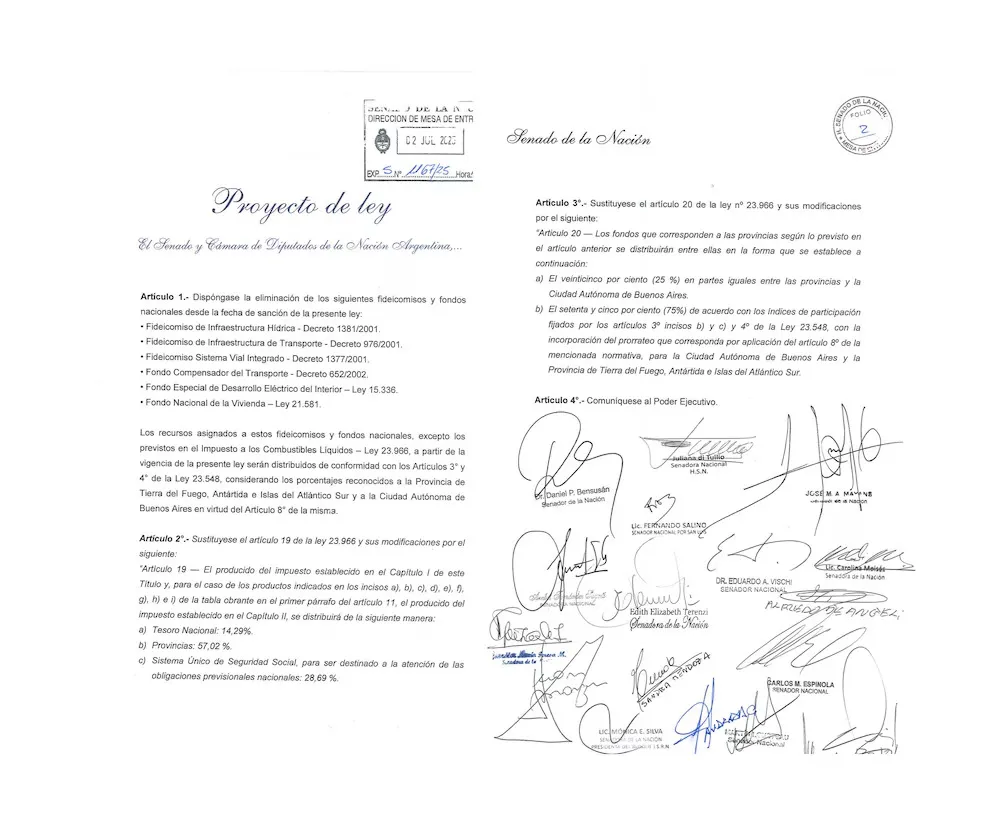 DIRECCION DE MESA DE ENTR
02 JUL 2025
EXP. S. Nº 1167/25 Hora:
Proyecto de ley
El Senado y Cámara de Diputados de la Nación Argentina,...
Artículo 1.- Dispóngase la eliminación de los siguientes fideicomisos y fondos
nacionales desde la fecha de sanción de la presente ley:
• Fideicomiso de Infraestructura Hídrica - Decreto 1381/2001.
• Fideicomiso de Infraestructura de Transporte - Decreto 976/2001.
• Fideicomiso Sistema Vial Integrado - Decreto 1377/2001.
• Fondo Compensador del Transporte - Decreto 652/2002.
• Fondo Especial de Desarrollo Eléctrico del Interior – Ley 15.336.
• Fondo Nacional de la Vivienda – Ley 21.581.
Los recursos asignados a estos fideicomisos y fondos nacionales, excepto los
previstos en el Impuesto a los Combustibles Líquidos – Ley 23.966, a partir de la
vigencia de la presente ley serán distribuidos de conformidad con los Artículos 3° y
4° de la Ley 23.548, considerando los porcentajes reconocidos a la Provincia de
Tierra del Fuego, Antártida e Islas del Atlántico Sur y a la Ciudad Autónoma de
Buenos Aires en virtud del Artículo 8° de la misma.
Artículo 2°.- Sustituyese el artículo 19 de la ley 23.966 y sus modificaciones por el
siguiente:
"Artículo 19 — El producido del impuesto establecido en el Capítulo I de este
Título y, para el caso de los productos indicados en los incisos a), b), c), d), e), f),
g), h) e i) de la tabla obrante en el primer párrafo del artículo 11, el producido del
impuesto establecido en el Capítulo II, se distribuirá de la siguiente manera:
a) Tesoro Nacional: 14,29%.
b) Provincias: 57,02 %.
c) Sistema Único de Seguridad Social, para ser destinado a la atención de las
obligaciones previsionales nacionales: 28,69 %.
Senado de la Nación
H. SENADO DE LA NACION
FOLIO
2
MESA DE
Artículo 3°.- Sustituyese el artículo 20 de la ley nº 23.966 y sus modificaciones
por el siguiente:
"Artículo 20 — Los fondos que corresponden a las provincias según lo previsto en
el artículo anterior se distribuirán entre ellas en la forma que se establece a
continuación:
a) El veinticinco por ciento (25 %) en partes iguales entre las provincias y la
Ciudad Autónoma de Buenos Aires.
b) El setenta y cinco por ciento (75%) de acuerdo con los índices de participación
fijados por los artículos 3º incisos b) y c) y 4º de la Ley 23.548, con la
incorporación del prorrateo que corresponda por aplicación del artículo 8º de la
mencionada normativa, para la Ciudad Autónoma de Buenos Aires y la
Provincia de Tierra del Fuego, Antártida e Islas del Atlántico Sur.
Artículo 4°.- Comuníquese al Poder Ejecutivo.
Dr. Daniel P. Bensusán
Senador de la Nación
Juliana di Tullio
Senadora Nacional
H.S.N.
JOSE M. A MAYANS
Lic. FERNANDO SALINO
SENADOR NACIONAL POR SAN LUIS
DR. EDUARDO A. VISCHI
SENADOR NACIONAL
Lic. Carolina Moisés
Senadora de la Nación
ALFREDO DE ANGELI
Edith Elizabeth Terenzi
Senadora de la Nación
SANDRA MENDOZA
CARLOS M. ESPINOLA
SENADOR NACIONAL
LIC. MÓNICA E. SILVA
SENADORA DE LA NACION
Senador Nacional